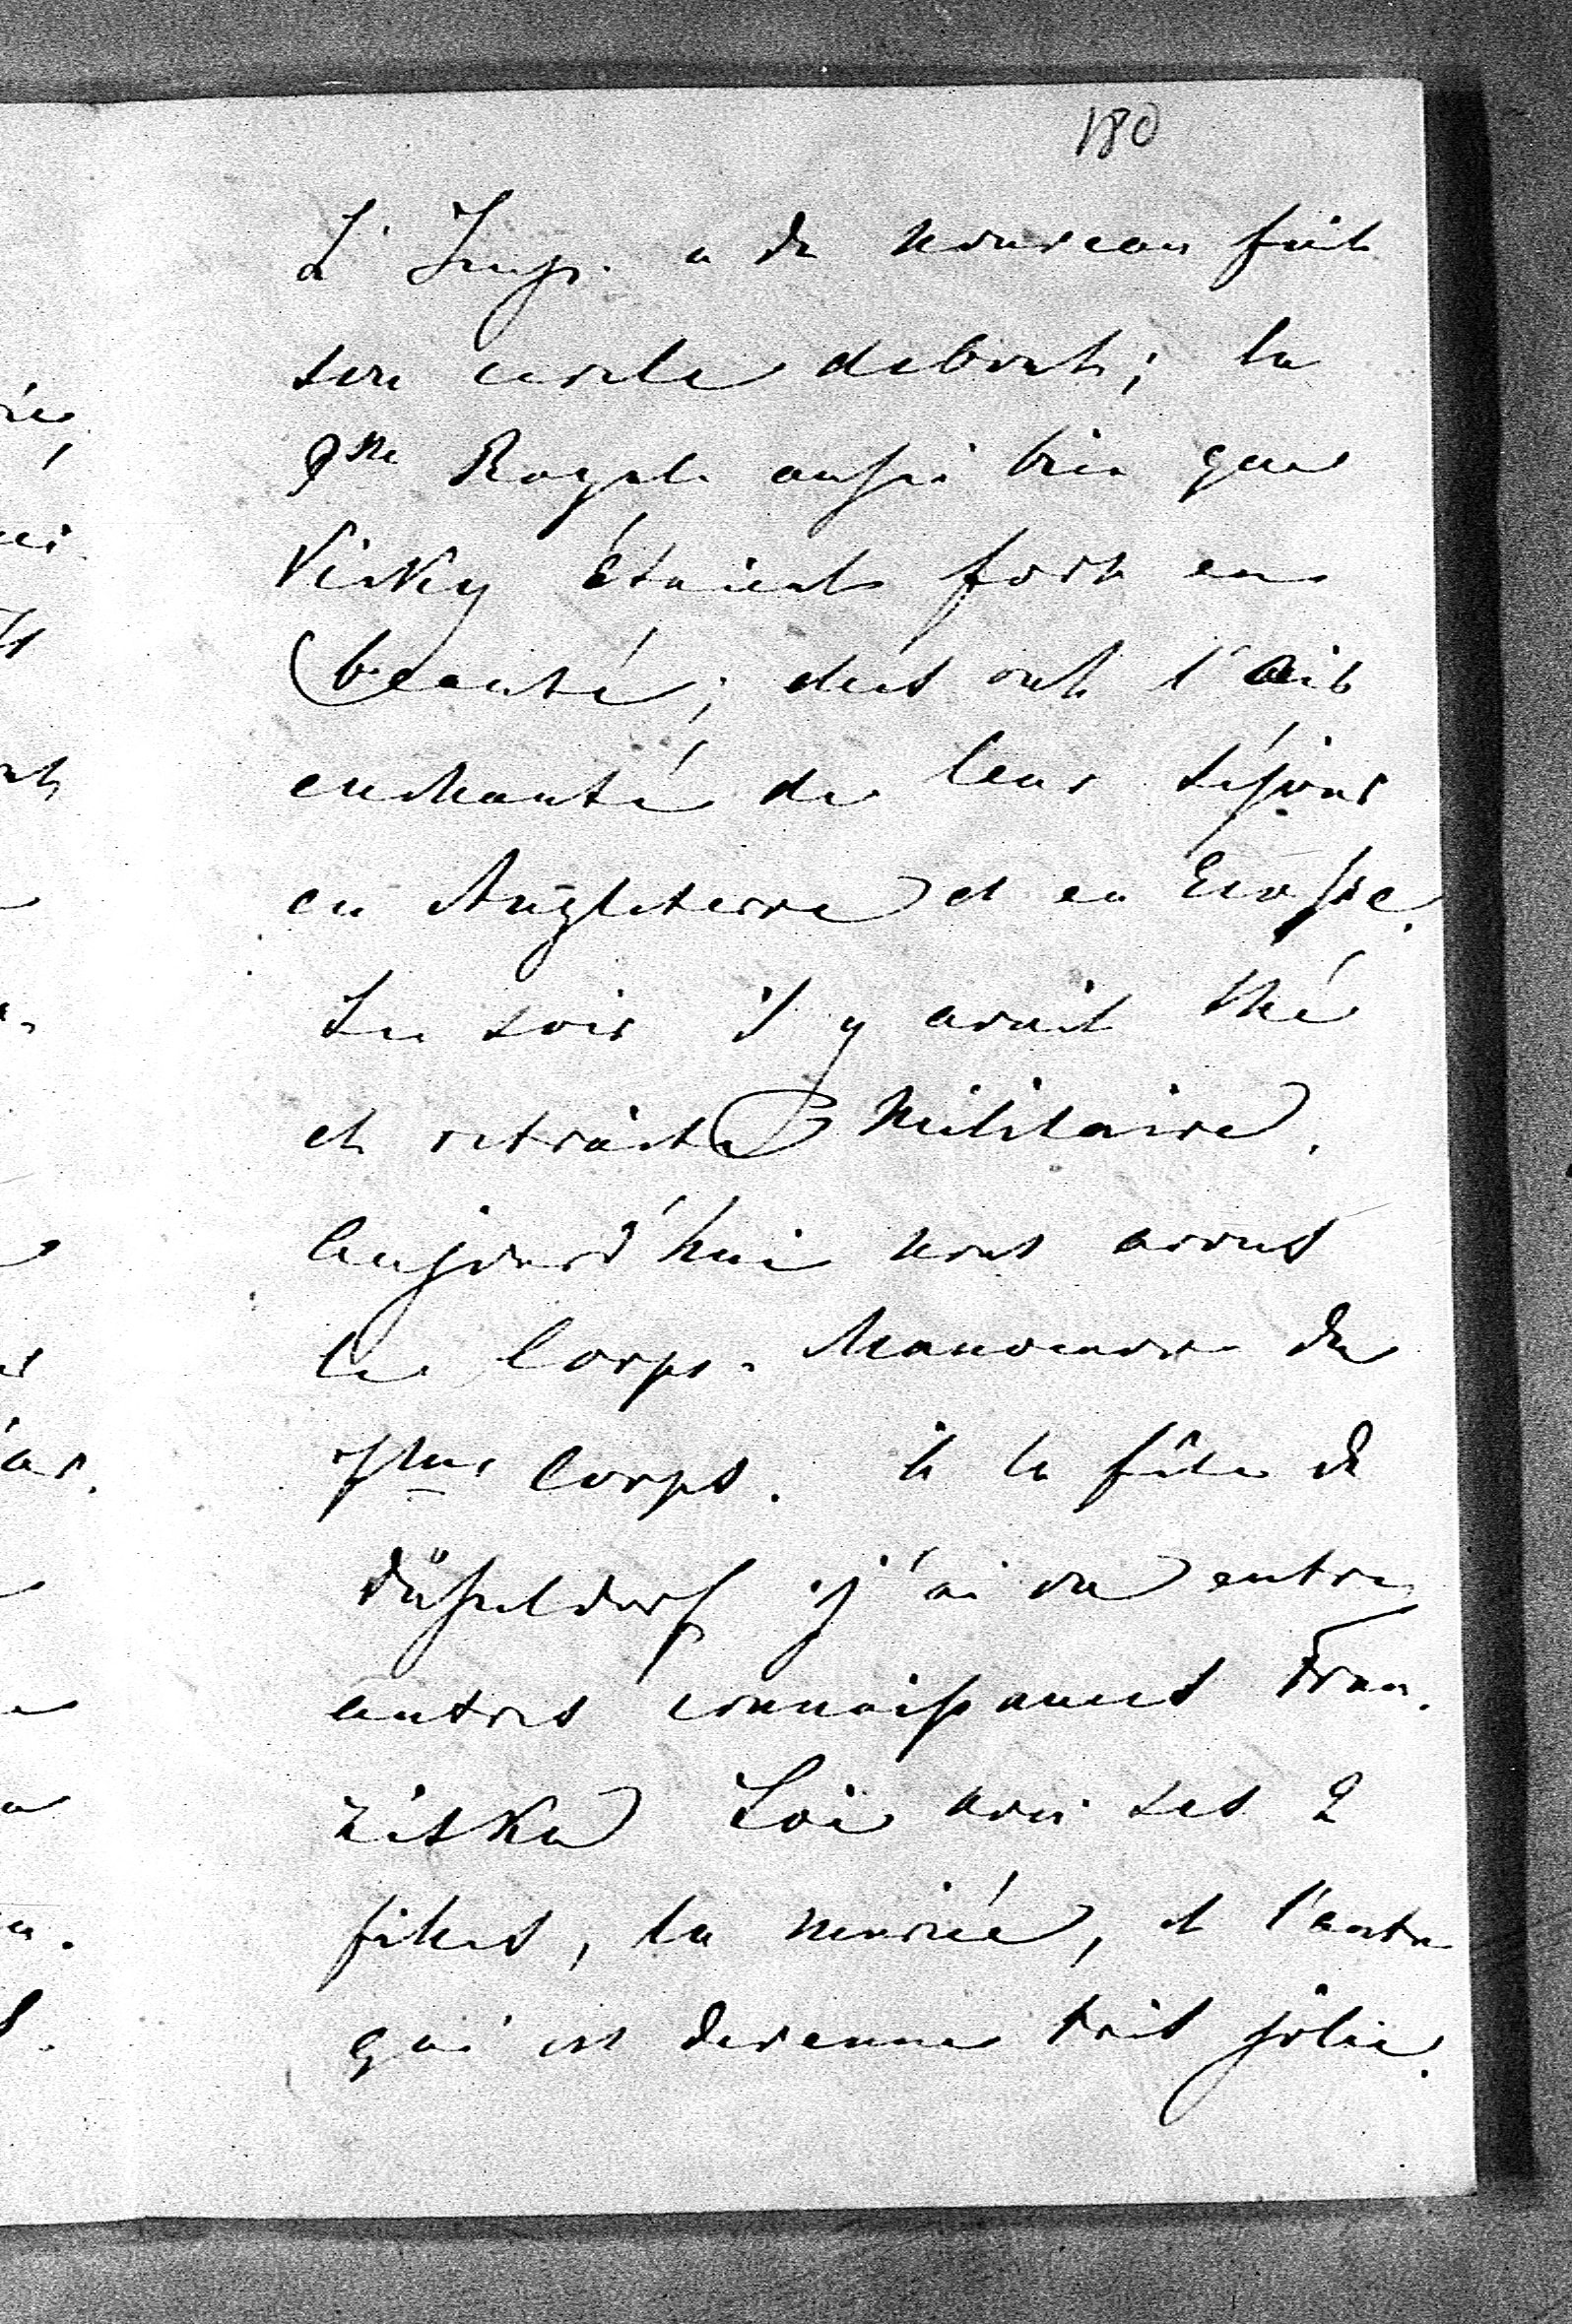 180
L'Imp. a de nouveau fait
son cercle debout; la
Pss Royale aussi bien que
Vicky étaient fort en
beauté; elles ont l'air
enchanté de leur séjour
en Angleterre et en Ecosse.
Le soir il y avait thé
et retraite militaire.
Aujourd'hui nous avons
le Corps-Manoeuvre du
7me Corps. à la fête de
Düsseldorf j'ai vu entre
autres connaissances Fran-
ziska avec ses 2
filles, la mariée, et l'autre
qui est devenue très jolie.